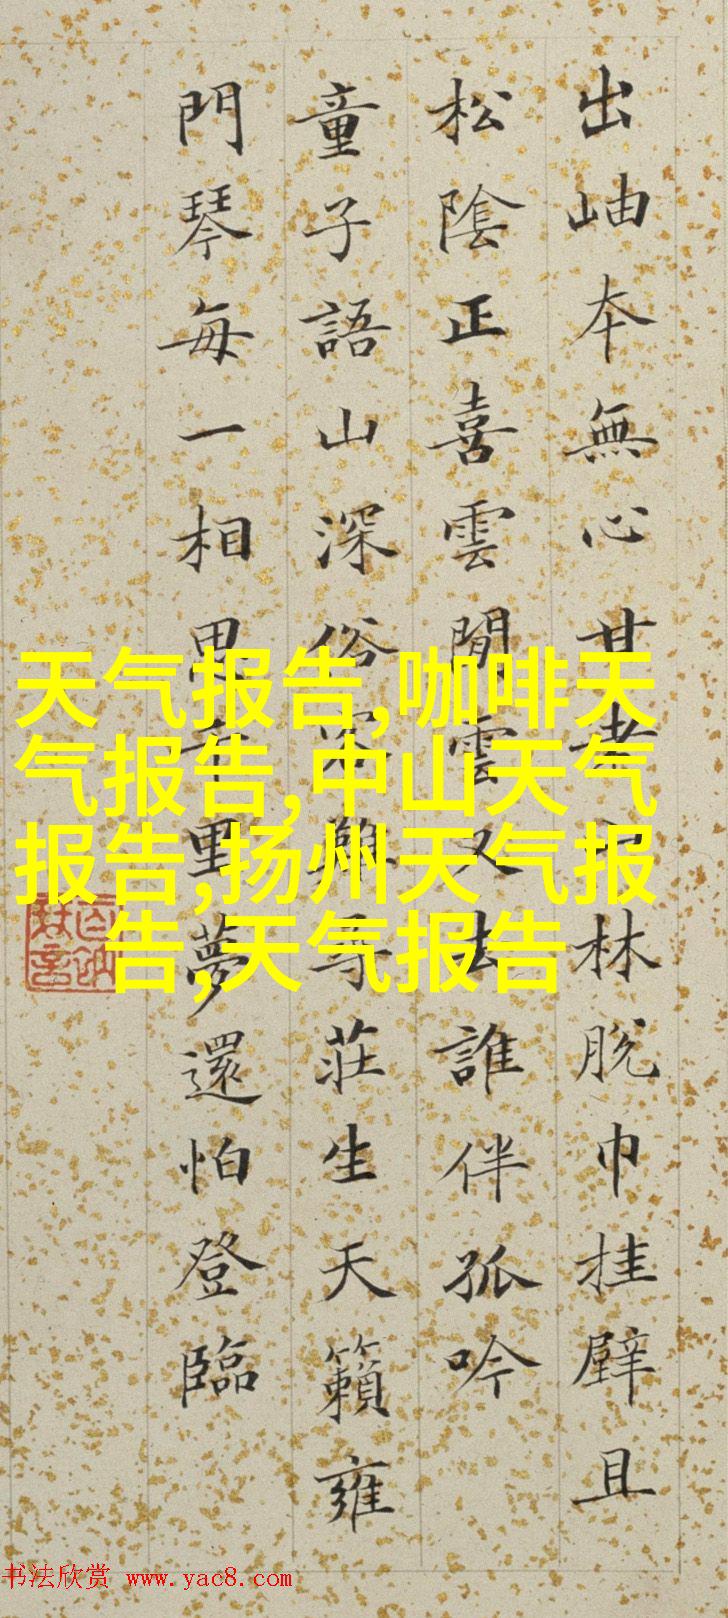 出岫本無心甘老山林脫巾挂壁且
松陰正喜雲閒雲又去誰伴孤吟
童子語山深俗客難尋莊生天籟雍
門琴每一相思千里夢還怕登臨
天气报告,咖啡天
气报告,中山天气
报告,扬州天气报
告,天气报告
书法欣赏 www.yac8.com